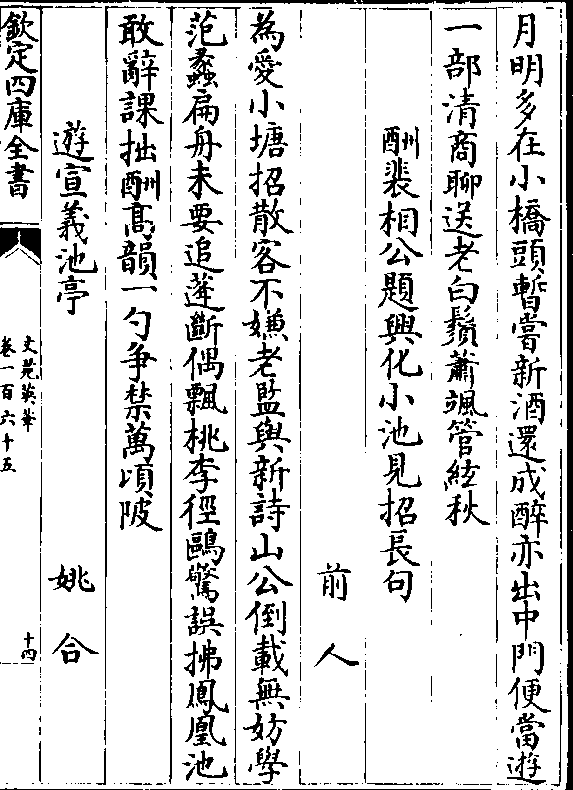 月明多在小橋頭暫嘗新酒還成醉亦出中門便當遊
一部清商聊送老白鬚蕭颯管絃秋
酬裴相公題興化小池見招長句
前人
為愛小塘招散客不嫌老監與新詩山公倒載無妨學
范蠡扁舟未要追蓬斷偶飄桃李徑鷗驚誤拂鳳凰池
敢辭課拙酬高韻一勺争禁萬頃陂
遊宣義池亭
姚合
欽定四庫全書
文苑英華
卷一百六十五
十四